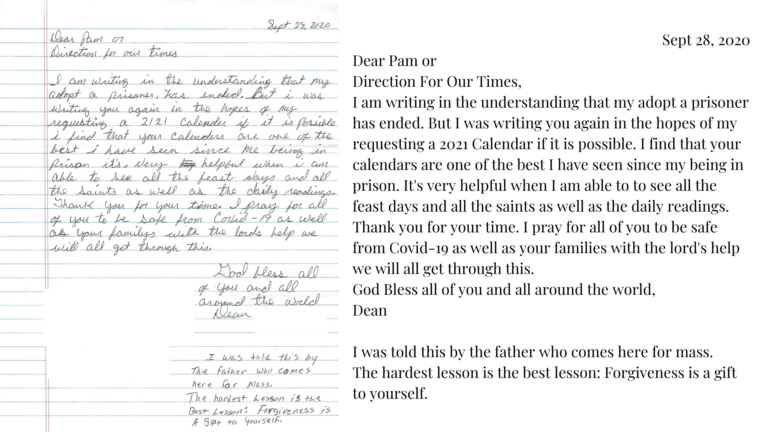 Sept 28, 2020
Dear Pam or
Direction for our times
I am writing in the understanding that my
adopt a prisoner, has ended. But i was
writing you again in the hopes of my
requesting a 2121 Calender if it is possible
i find that your Calenders are one of the
best i have seen since me being in
prison it's very helpful when i am
able to see all the feast days and all
the saints as well as the daily readings.
Thank you for your time. I pray for all
of you to be safe from Covid-19 as well
as your familys with the lords help we
will all get through this.
God bless all
of you and all
around the world
Dean
I was told this by
The Father who comes
here for Mass.
The hardest Lesson is the
Best Lesson: Forgiveness is
A gift to yourself.
Sept 28, 2020
Dear Pam or
Direction For Our Times,
I am writing in the understanding that my adopt a prisoner
has ended. But I was writing you again in the hopes of my
requesting a 2021 Calendar if it is possible. I find that your
calendars are one of the best I have seen since my being in
prison. It's very helpful when I am able to to see all the
feast days and all the saints as well as the daily readings.
Thank you for your time. I pray for all of you to be safe
from Covid-19 as well as your families with the lord's help
we will all get through this.
God Bless all of you and all around the world,
Dean
I was told this by the father who comes here for mass.
The hardest lesson is the best lesson: Forgiveness is a gift
to yourself.